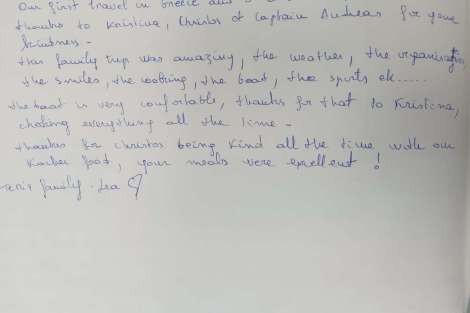 Our first travel in Greece and
thanks to Kristina, Christos et Captain Andreas for your
kindness -
this family trip was amazing, the weather, the organisation
the smiles, the cooking, the boat, the spots ek.....
the boat is very comfortable, thanks for that to Kristina,
cheking everything all the time -
thanks for Christos being kind all the time with our
Kasher food, your meals were excellent !
family - Lea